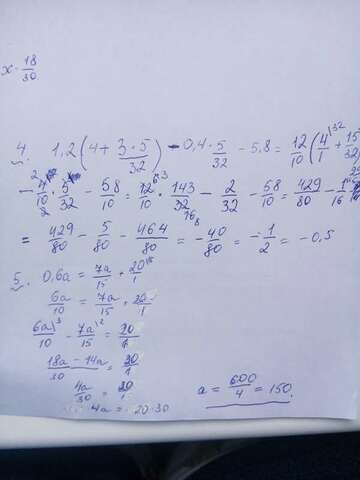 x · 18/30
4. 1,2 (4 + 3·5/32) - 0,4 · 5/32 - 5,8 = 12/10 (4/1 + 15/32)
- 4/10 · 5/32 - 58/10 = 12/10 · 143/32 - 2/32 - 58/10 = 429/80 - 1/16
= 429/80 - 5/80 - 464/80 = - 40/80 = - 1/2 = - 0,5
5. 0,6a = 7a/15 + 20/1
6a/10 = 7a/15 + 20/1
6a/10 - 7a/15 = 20/1
18a - 14a/30 = 20/1
4a/30 = 20/1
4a = 20·30
a = 600/4 = 150.